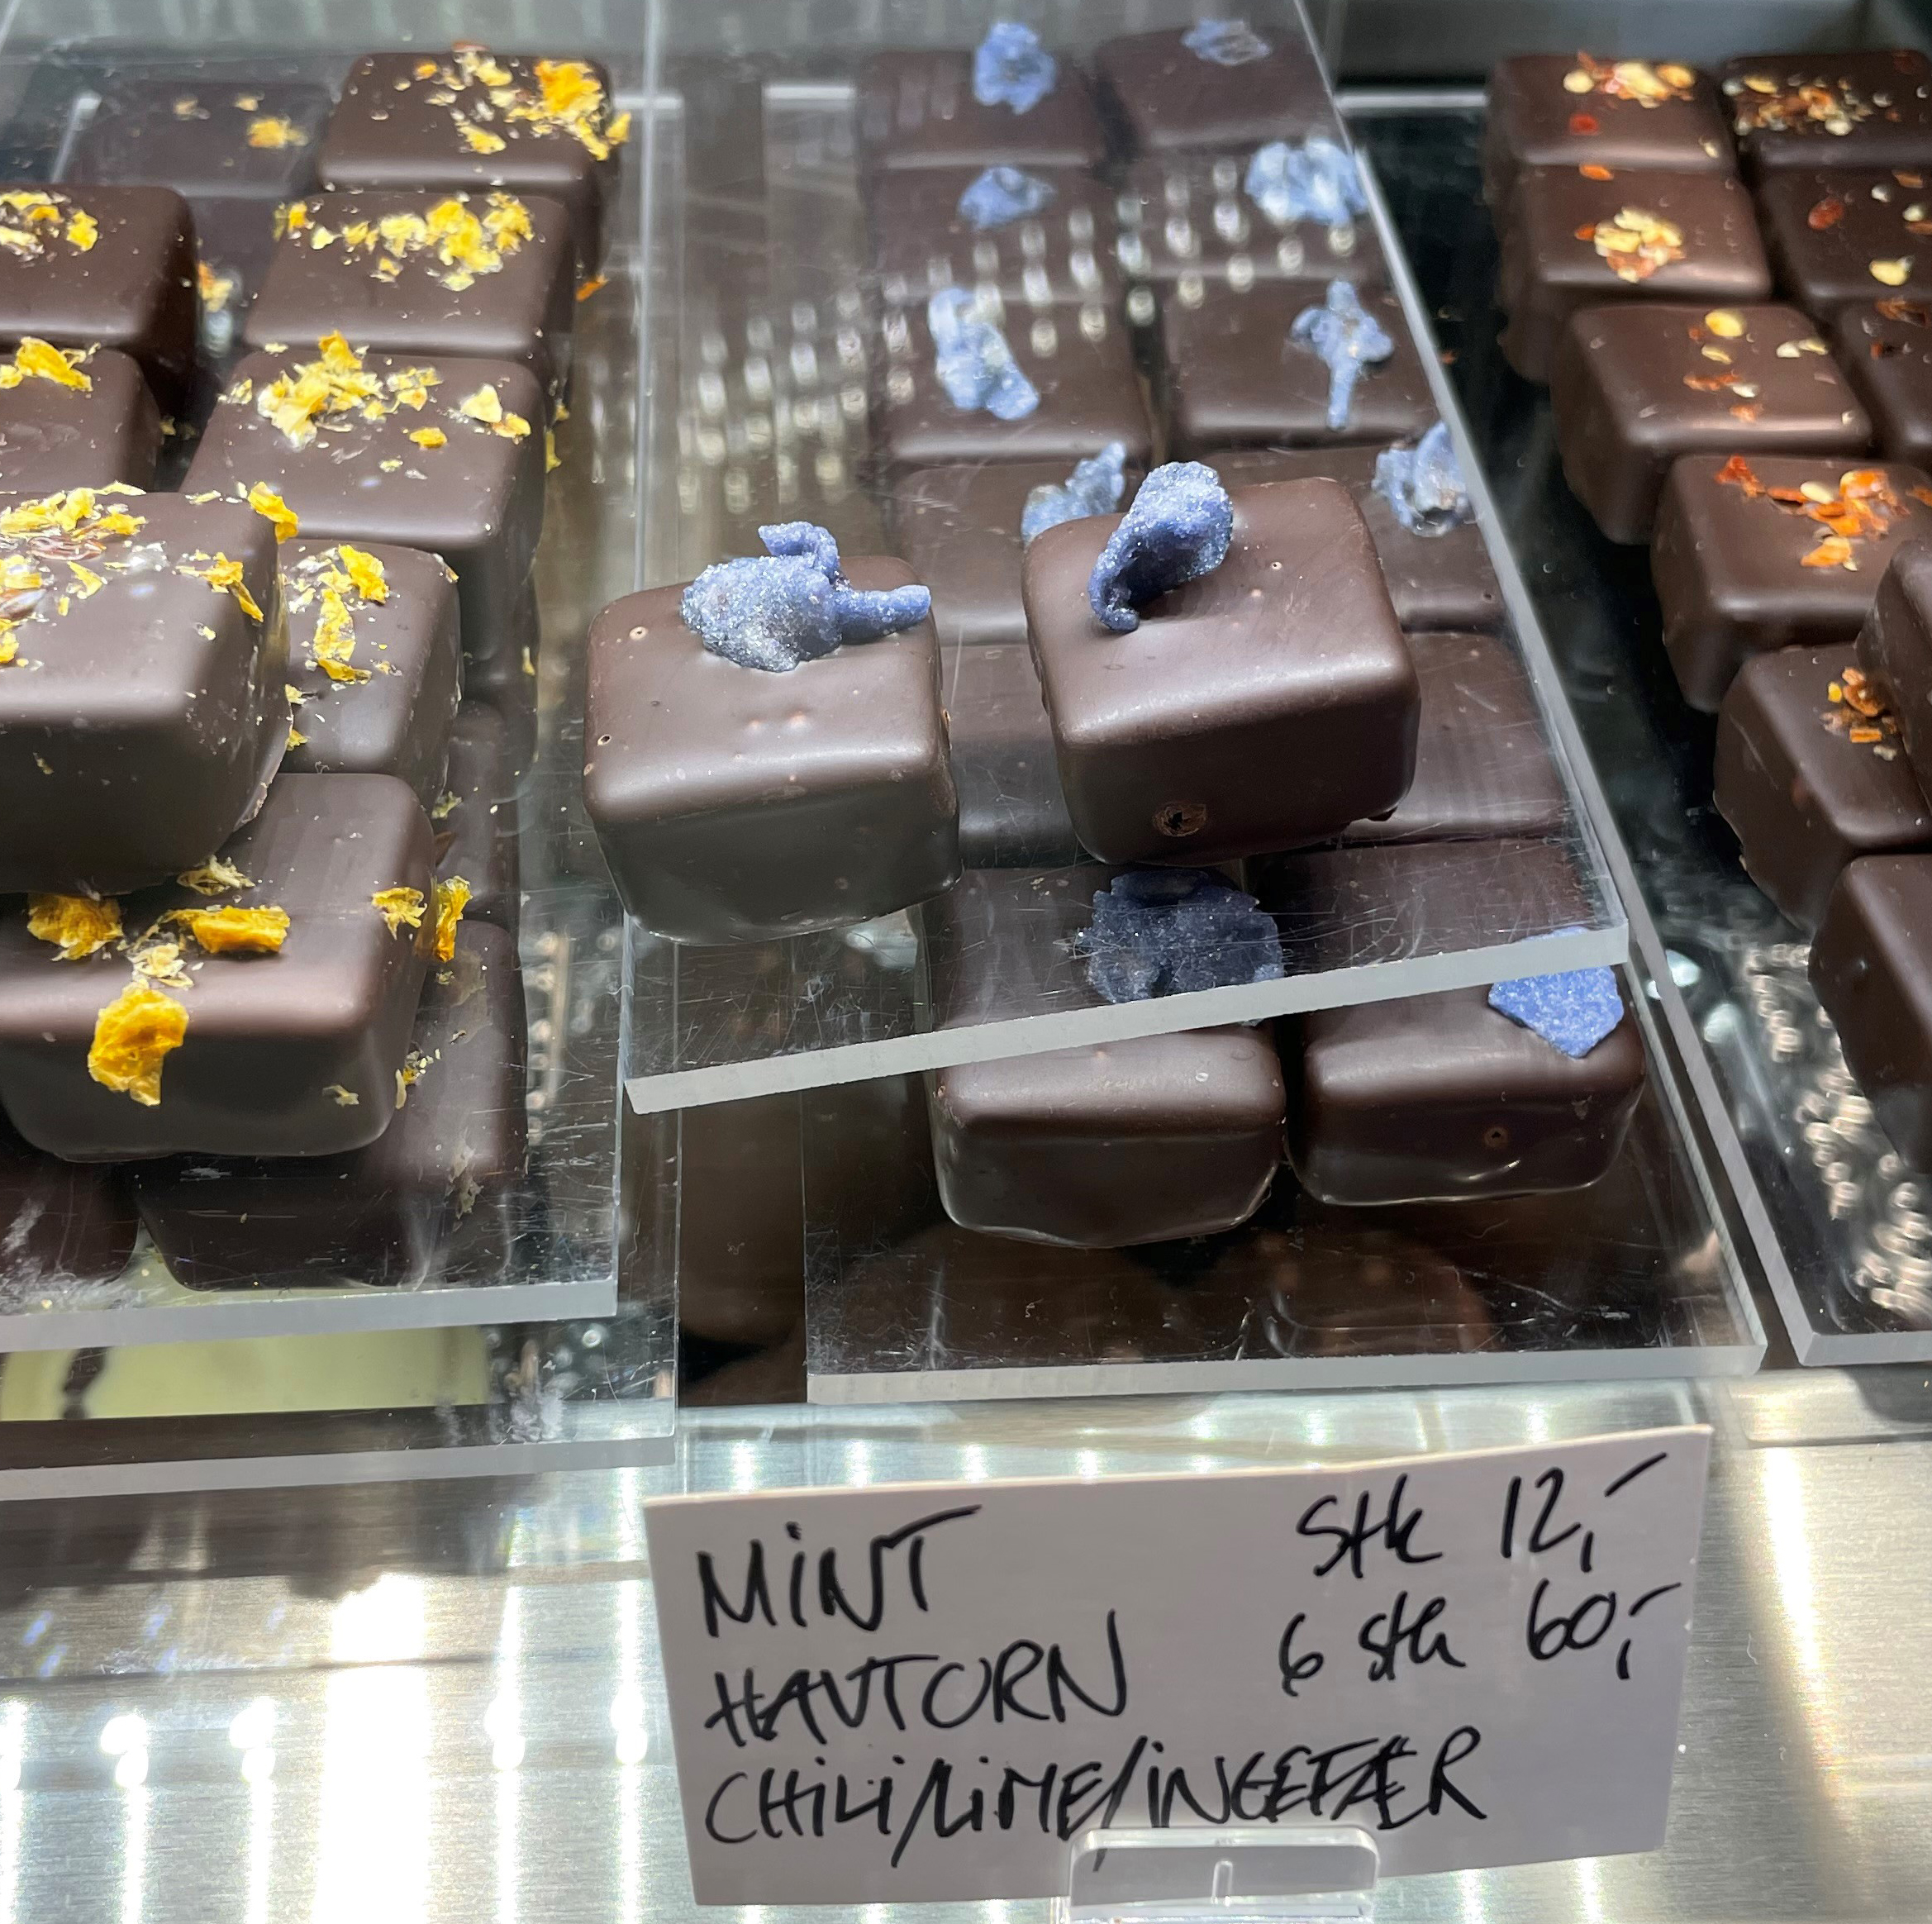 MINT
HAVTORN
CHILI/LIME/INGEFÆR
Stk 12,-
6 stk 60,-